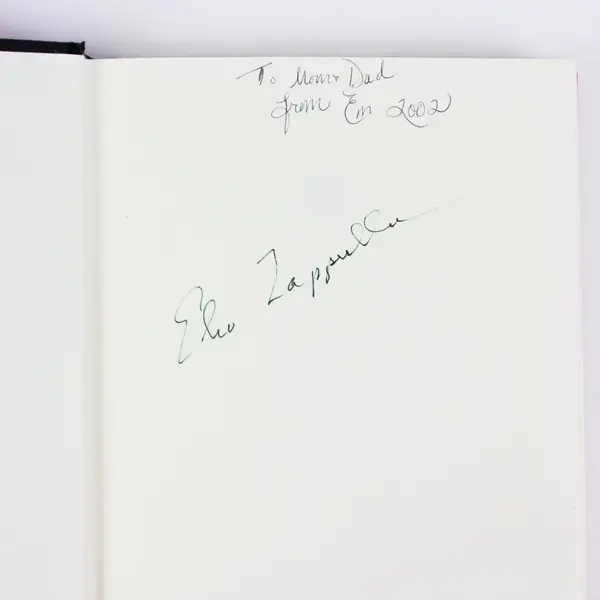 To Mom & Dad
from Em 2002
Elio Zappulla